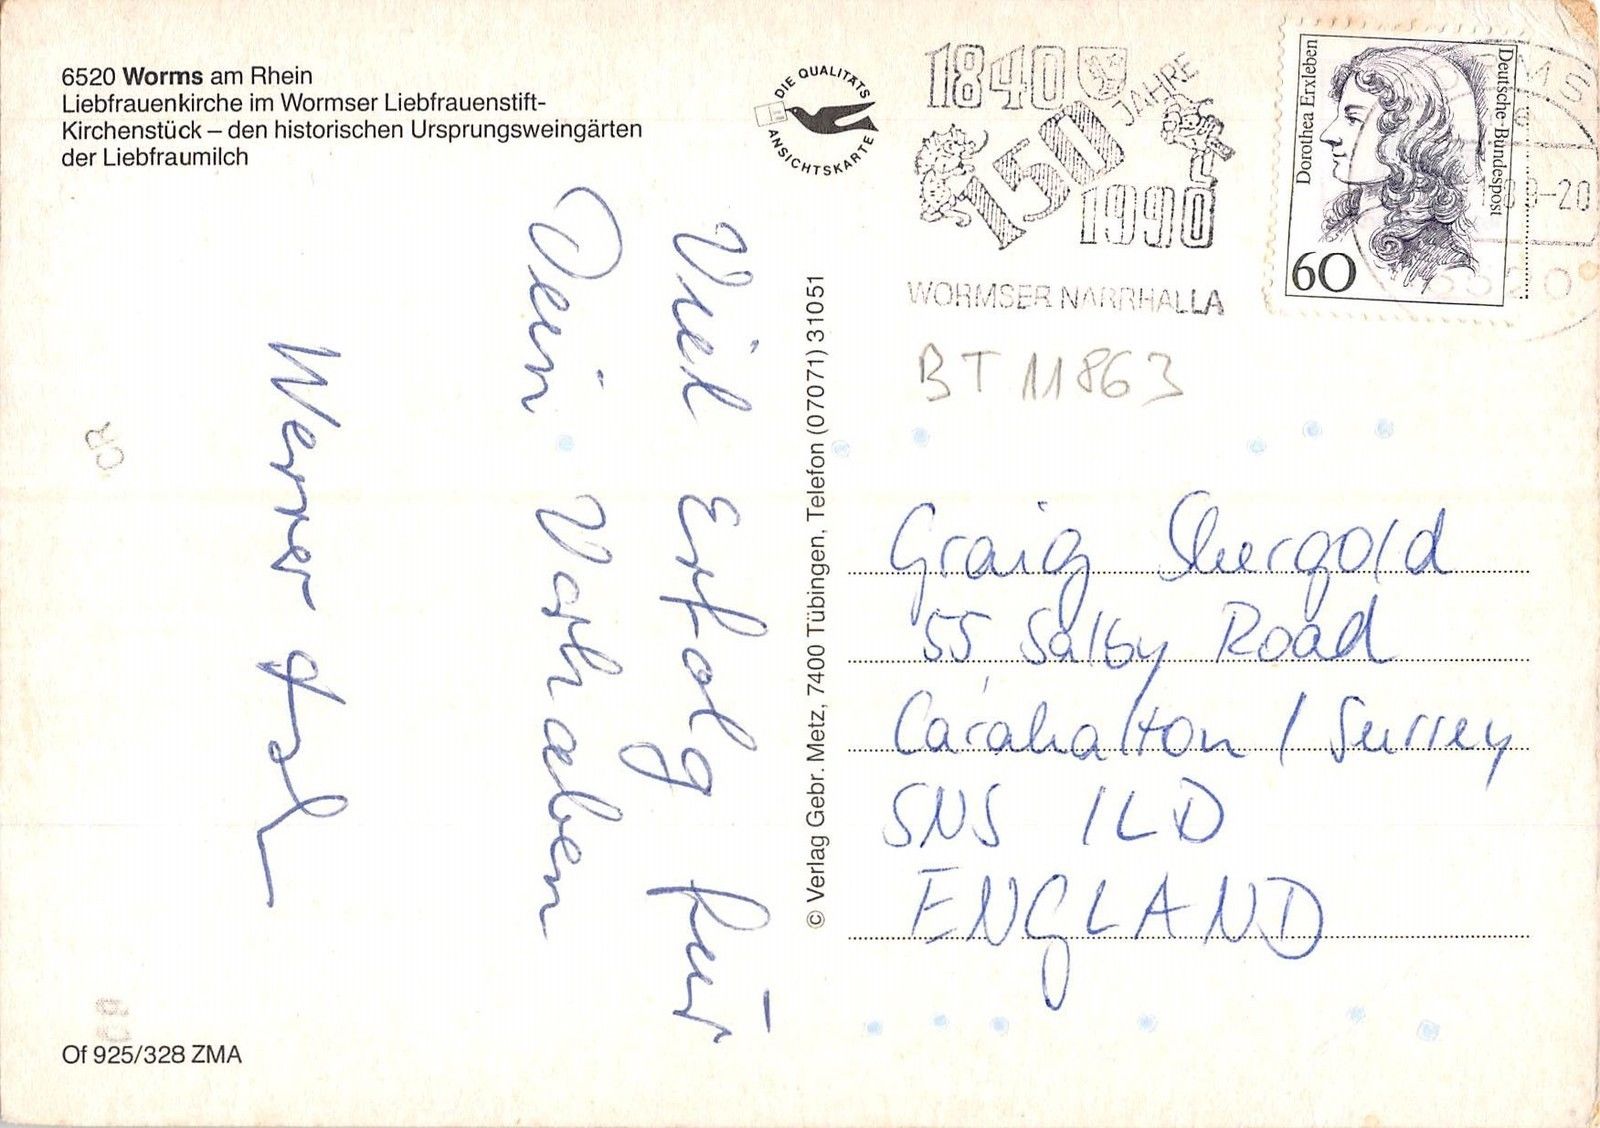 6520 Worms am Rhein
Liebfrauenkirche im Wormser Liebfrauenstift-
Kirchenstück – den historischen Ursprungsweingärten
der Liebfraumilch
DIE QUALITÄTS
ANSICHTSKARTE
1840
150 JAHRE
1990
WORMSER NARRHALLA
Dorothea Erxleben
Deutsche Bundespost
60
-20
6520
BT 11863
Viel Erfolg für
Dein Vorhaben
Werner
© Verlag Gebr. Metz, 7400 Tübingen, Telefon (07071) 31051
Graig Shergold
55 Salby Road
Carahalton / Surrey
SNS 1LD
ENGLAND
CR
Of 925/328 ZMA